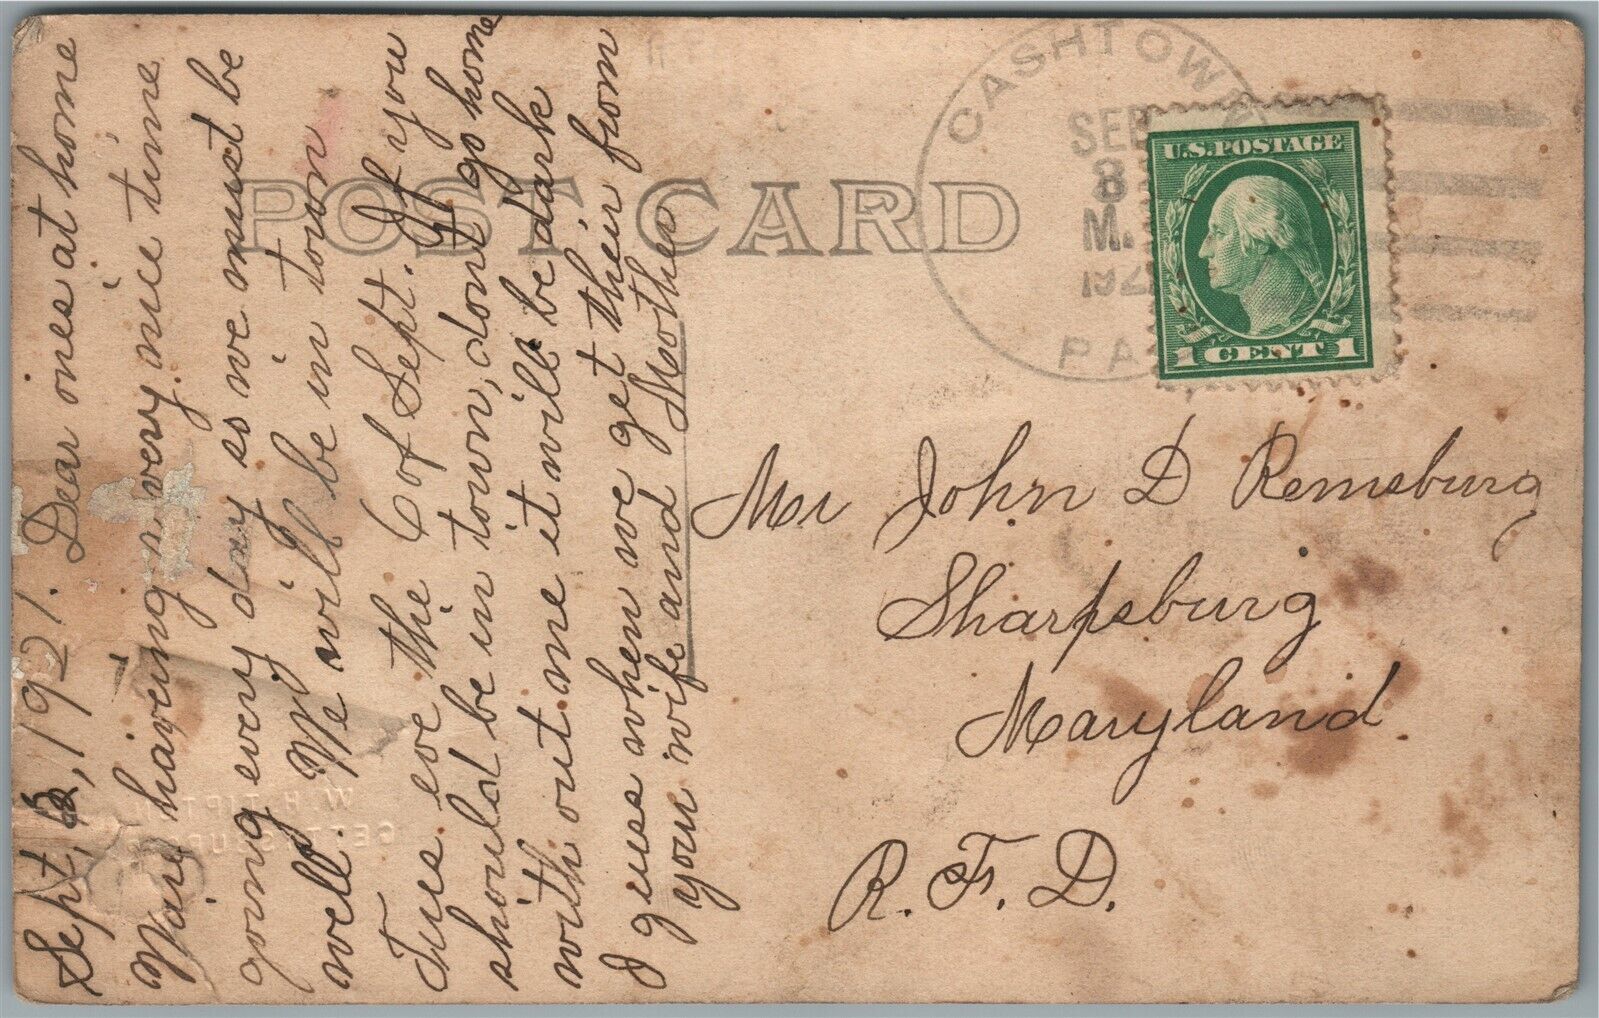 Sept, 2, 1921. Dear ones at home
Wair haveing a very nice time
going every day so we must be
well. We will be in town
Tues eve the 6 of Sept. If you
should be in town, dont go home
with out me it will be dark
I gues when we get their from
your wife and Mother
POST CARD
CASHTOWN
SEP
8
M.
192
PA.
U.S.POSTAGE
1 CENT 1
Mr John D Remsburg
Sharpsburg
Maryland
R. F. D.
W. H. TIPTON
GETTYSBURG